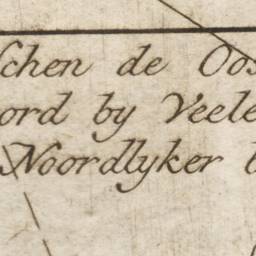 schen de Oos
ord by Veele
Noordlyker b